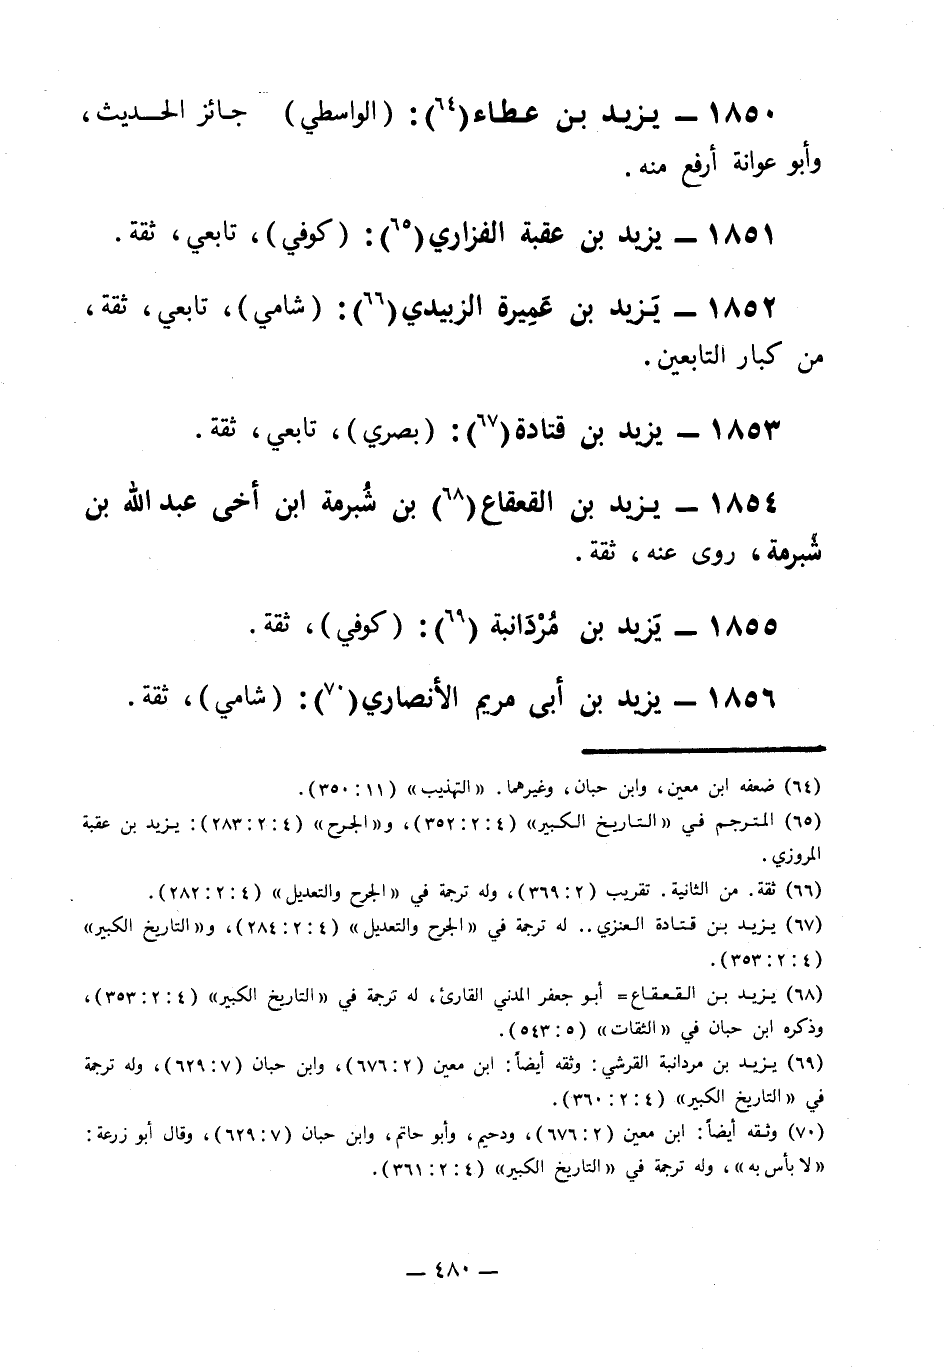 ١٨٥٠ ــ يـزيـد بـن عـطـاء(٦٤): (الواسطي) جـائـز الحـديـث،
وأبو عوانة أرفع منه.
١٨٥١ ــ يزيد بن عقبة الفزاري(٦٥): (كوفي)، تابعي، ثقة.
١٨٥٢ ــ يَـزيـد بن عَمِيرة الزبيدي(٦٦): (شامي)، تابعي، ثقة،
من كبار التابعين.
١٨٥٣ ــ يزيد بن قتادة(٦٧): (بصري)، تابعي، ثقة.
١٨٥٤ ــ يـزيـد بن القعقاع(٦٨) بن شُبرمة ابن أخى عبد الله بن
شُبرمة، روى عنه، ثقة.
١٨٥٥ ــ يَزيد بن مُرْدَانبة (٦٩): (كوفي)، ثقة.
١٨٥٦ ــ يزيد بن أبى مريم الأنصاري(٧٠): (شامي)، ثقة.
(٦٤) ضعفه ابن معين، وابن حبان، وغيرهما. «التهذيب» (١١: ٣٥٠).
(٦٥) المترجم في «التاريخ الكبير» (٤: ٢: ٣٥٢)، و«الجرح» (٤: ٢: ٢٨٣): يزيد بن عقبة
المروزي.
(٦٦) ثقة. من الثانية. تقريب (٢: ٣٦٩)، وله ترجمة في «الجرح والتعديل» (٤: ٢: ٢٨٢).
(٦٧) يزيد بن قتادة العنزي.. له ترجمة في «الجرح والتعديل» (٤: ٢: ٢٨٤)، و«التاريخ الكبير»
(٤: ٢: ٣٥٣).
(٦٨) يزيد بن القعقاع= أبو جعفر المدني القارئ، له ترجمة في «التاريخ الكبير» (٤: ٢: ٣٥٣)،
وذكره ابن حبان في «الثقات» (٥: ٥٤٣).
(٦٩) يزيد بن مردانبة القرشي: وثقه أيضاً: ابن معين (٢: ٦٧٦)، وابن حبان (٧: ٦٢٩)، وله ترجمة
في «التاريخ الكبير» (٤: ٢: ٣٦٠).
(٧٠) وثقه أيضاً: ابن معين (٢: ٦٧٦)، ودحيم، وأبو حاتم، وابن حبان (٧: ٦٢٩)، وقال أبو زرعة:
«لا بأس به»، وله ترجمة في «التاريخ الكبير» (٤: ٢: ٣٦١).
ــ ٤٨٠ ــ